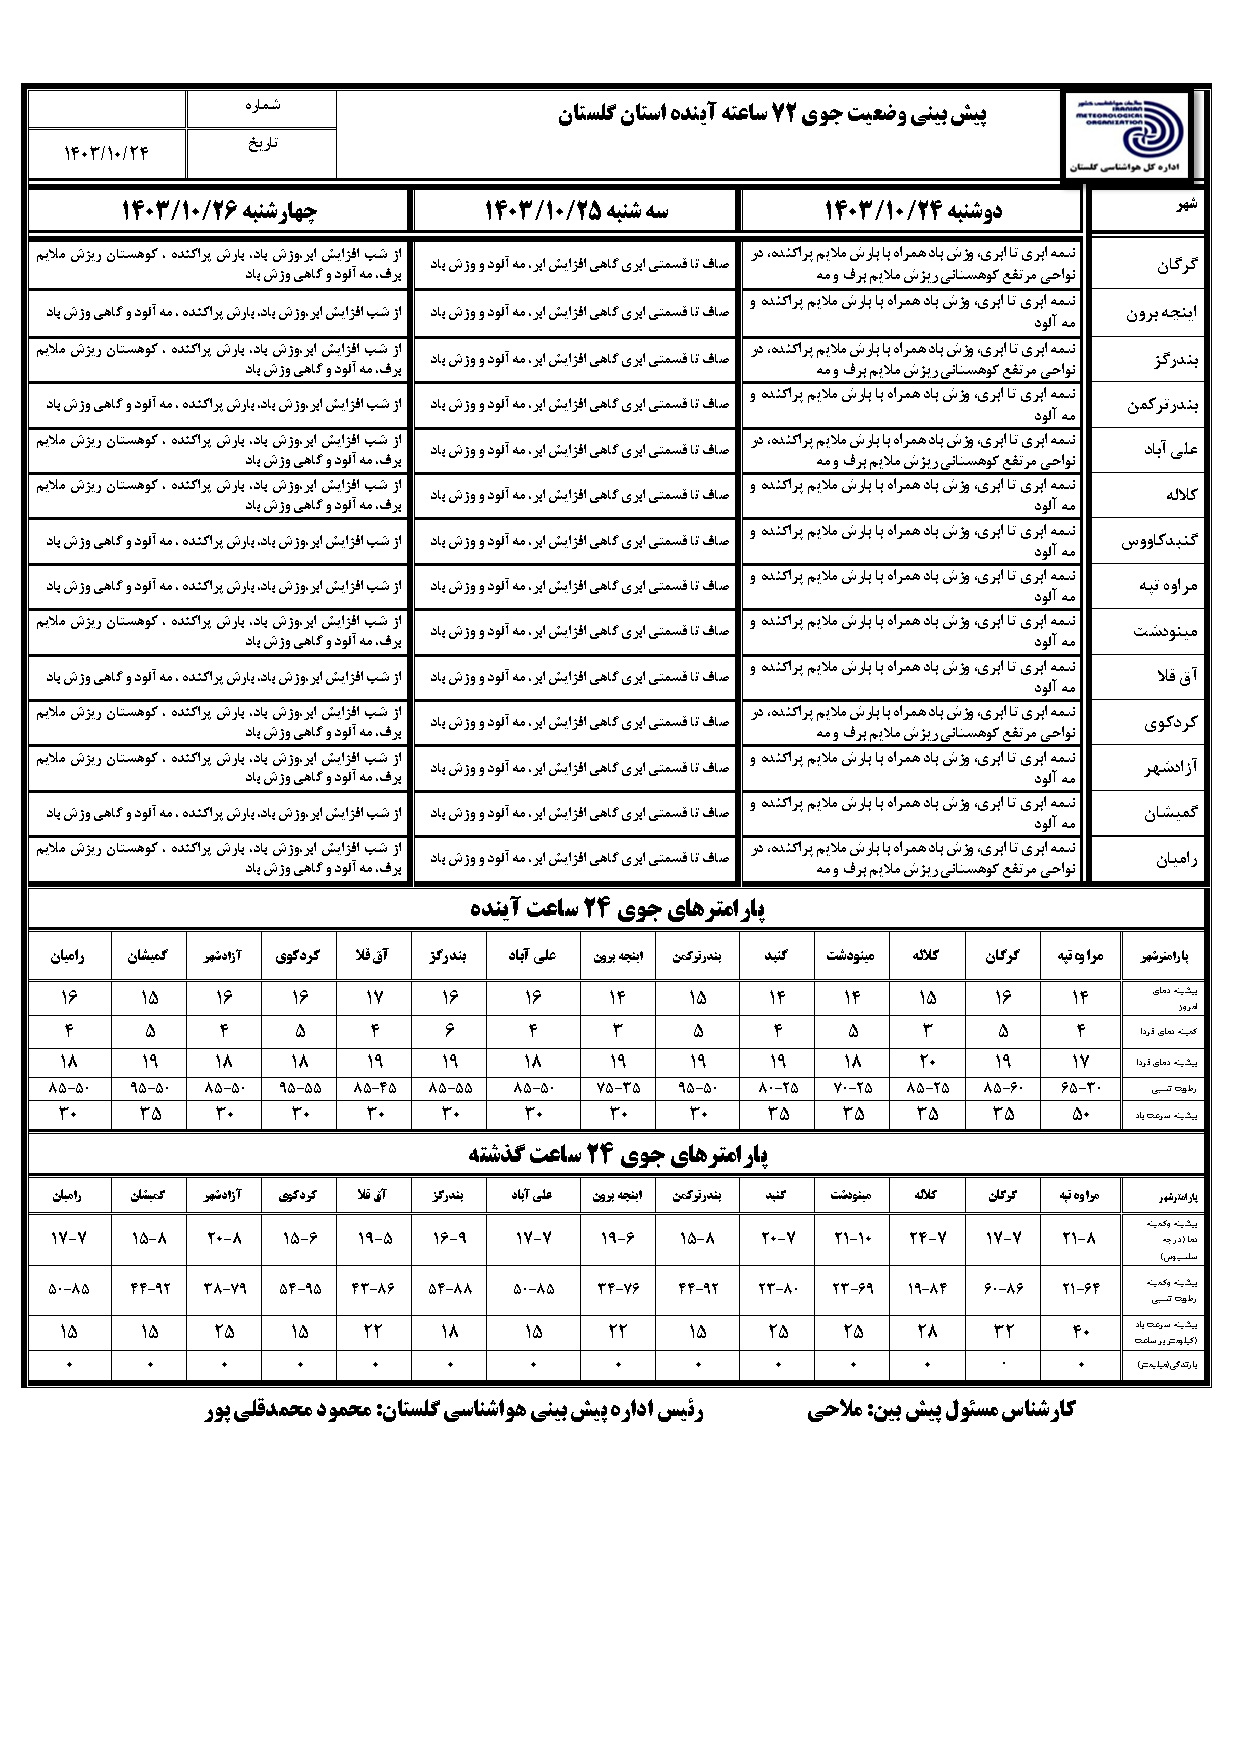 سازمان هواشناسی کشور
IRANIAN
METEOROLOGICAL
ORGANIZATION
اداره کل هواشناسی گلستان
پیش بینی وضعیت جوی ۷۲ ساعته آینده استان گلستان
شماره
تاریخ
۱۴۰۳/۱۰/۲۴
شهر
دوشنبه ۱۴۰۳/۱۰/۲۴
سه شنبه ۱۴۰۳/۱۰/۲۵
چهارشنبه ۱۴۰۳/۱۰/۲۶
گرگان
نیمه ابری تا ابری، وزش باد همراه با بارش ملایم پراکنده، در
نواحی مرتفع کوهستانی ریزش ملایم برف و مه
صاف تا قسمتی ابری گاهی افزایش ابر، مه آلود و وزش باد
از شب افزایش ابر،وزش باد، بارش پراکنده ، کوهستان ریزش ملایم
برف، مه آلود و گاهی وزش باد
اینچه برون
نیمه ابری تا ابری، وزش باد همراه با بارش ملایم پراکنده و
مه آلود
صاف تا قسمتی ابری گاهی افزایش ابر، مه آلود و وزش باد
از شب افزایش ابر،وزش باد، بارش پراکنده ، مه آلود و گاهی وزش باد
بندرگز
نیمه ابری تا ابری، وزش باد همراه با بارش ملایم پراکنده، در
نواحی مرتفع کوهستانی ریزش ملایم برف و مه
صاف تا قسمتی ابری گاهی افزایش ابر، مه آلود و وزش باد
از شب افزایش ابر،وزش باد، بارش پراکنده ، کوهستان ریزش ملایم
برف، مه آلود و گاهی وزش باد
بندرترکمن
نیمه ابری تا ابری، وزش باد همراه با بارش ملایم پراکنده و
مه آلود
صاف تا قسمتی ابری گاهی افزایش ابر، مه آلود و وزش باد
از شب افزایش ابر،وزش باد، بارش پراکنده ، مه آلود و گاهی وزش باد
علی آباد
نیمه ابری تا ابری، وزش باد همراه با بارش ملایم پراکنده، در
نواحی مرتفع کوهستانی ریزش ملایم برف و مه
صاف تا قسمتی ابری گاهی افزایش ابر، مه آلود و وزش باد
از شب افزایش ابر،وزش باد، بارش پراکنده ، کوهستان ریزش ملایم
برف، مه آلود و گاهی وزش باد
کلاله
نیمه ابری تا ابری، وزش باد همراه با بارش ملایم پراکنده و
مه آلود
صاف تا قسمتی ابری گاهی افزایش ابر، مه آلود و وزش باد
از شب افزایش ابر،وزش باد، بارش پراکنده ، کوهستان ریزش ملایم
برف، مه آلود و گاهی وزش باد
گنبدکاووس
نیمه ابری تا ابری، وزش باد همراه با بارش ملایم پراکنده و
مه آلود
صاف تا قسمتی ابری گاهی افزایش ابر، مه آلود و وزش باد
از شب افزایش ابر،وزش باد، بارش پراکنده ، مه آلود و گاهی وزش باد
مراوه تپه
نیمه ابری تا ابری، وزش باد همراه با بارش ملایم پراکنده و
مه آلود
صاف تا قسمتی ابری گاهی افزایش ابر، مه آلود و وزش باد
از شب افزایش ابر،وزش باد، بارش پراکنده ، مه آلود و گاهی وزش باد
مینودشت
نیمه ابری تا ابری، وزش باد همراه با بارش ملایم پراکنده و
مه آلود
صاف تا قسمتی ابری گاهی افزایش ابر، مه آلود و وزش باد
از شب افزایش ابر،وزش باد، بارش پراکنده ، کوهستان ریزش ملایم
برف، مه آلود و گاهی وزش باد
آق قلا
نیمه ابری تا ابری، وزش باد همراه با بارش ملایم پراکنده و
مه آلود
صاف تا قسمتی ابری گاهی افزایش ابر، مه آلود و وزش باد
از شب افزایش ابر،وزش باد، بارش پراکنده ، مه آلود و گاهی وزش باد
کردکوی
نیمه ابری تا ابری، وزش باد همراه با بارش ملایم پراکنده، در
نواحی مرتفع کوهستانی ریزش ملایم برف و مه
صاف تا قسمتی ابری گاهی افزایش ابر، مه آلود و وزش باد
از شب افزایش ابر،وزش باد، بارش پراکنده ، کوهستان ریزش ملایم
برف، مه آلود و گاهی وزش باد
آزادشهر
نیمه ابری تا ابری، وزش باد همراه با بارش ملایم پراکنده و
مه آلود
صاف تا قسمتی ابری گاهی افزایش ابر، مه آلود و وزش باد
از شب افزایش ابر،وزش باد، بارش پراکنده ، کوهستان ریزش ملایم
برف، مه آلود و گاهی وزش باد
گمیشان
نیمه ابری تا ابری، وزش باد همراه با بارش ملایم پراکنده و
مه آلود
صاف تا قسمتی ابری گاهی افزایش ابر، مه آلود و وزش باد
از شب افزایش ابر،وزش باد، بارش پراکنده ، مه آلود و گاهی وزش باد
رامیان
نیمه ابری تا ابری، وزش باد همراه با بارش ملایم پراکنده، در
نواحی مرتفع کوهستانی ریزش ملایم برف و مه
صاف تا قسمتی ابری گاهی افزایش ابر، مه آلود و وزش باد
از شب افزایش ابر،وزش باد، بارش پراکنده ، کوهستان ریزش ملایم
برف، مه آلود و گاهی وزش باد
پارامترهای جوی ۲۴ ساعت آینده
پارامترشهر مراوه تپه گرگان کلاله مینودشت گنبد بندرترکمن اینچه برون علی آباد بندرگز آق قلا کردکوی آزادشهر گمیشان رامیان
بیشینه دمای
امروز
۱۴ ۱۶ ۱۵ ۱۴ ۱۴ ۱۵ ۱۴ ۱۶ ۱۶ ۱۷ ۱۶ ۱۶ ۱۵ ۱۶
کمینه دمای فردا ۴ ۵ ۳ ۵ ۴ ۵ ۳ ۴ ۶ ۴ ۵ ۴ ۵ ۴
بیشینه دمای فردا ۱۷ ۱۹ ۲۰ ۱۸ ۱۹ ۱۹ ۱۹ ۱۸ ۱۹ ۱۹ ۱۸ ۱۸ ۱۹ ۱۸
رطوبت نسبی ۶۵-۳۰ ۸۵-۶۰ ۸۵-۲۵ ۷۰-۲۵ ۸۰-۲۵ ۹۵-۵۰ ۷۵-۳۵ ۸۵-۵۰ ۸۵-۵۵ ۸۵-۴۵ ۹۵-۵۵ ۸۵-۵۰ ۹۵-۵۰ ۸۵-۵۰
بیشینه سرعت باد ۵۰ ۳۵ ۳۵ ۳۵ ۳۵ ۳۰ ۳۰ ۳۰ ۳۰ ۳۰ ۳۰ ۳۰ ۳۵ ۳۰
پارامترهای جوی ۲۴ ساعت گذشته
پارامترشهر مراوه تپه گرگان کلاله مینودشت گنبد بندرترکمن اینچه برون علی آباد بندرگز آق قلا کردکوی آزادشهر گمیشان رامیان
بیشینه وکمینه
دما (درجه
سلسیوس)
۲۱-۸ ۱۷-۷ ۲۴-۷ ۲۱-۱۰ ۲۰-۷ ۱۵-۸ ۱۹-۶ ۱۷-۷ ۱۶-۹ ۱۹-۵ ۱۵-۶ ۲۰-۸ ۱۵-۸ ۱۷-۷
بیشینه وکمینه
رطوبت نسبی
۲۱-۶۴ ۶۰-۸۶ ۱۹-۸۴ ۲۳-۶۹ ۲۳-۸۰ ۴۴-۹۲ ۳۴-۷۶ ۵۰-۸۵ ۵۴-۸۸ ۴۳-۸۶ ۵۴-۹۵ ۳۸-۷۹ ۴۴-۹۲ ۵۰-۸۵
بیشینه سرعت باد
(کیلومتر بر ساعت
۴۰ ۳۲ ۲۸ ۲۵ ۲۵ ۱۵ ۲۲ ۱۵ ۱۸ ۲۲ ۱۵ ۲۵ ۱۵ ۱۵
بارندگی(میلیمتر) ۰ ۰ ۰ ۰ ۰ ۰ ۰ ۰ ۰ ۰ ۰ ۰ ۰ ۰
کارشناس مسئول پیش بین: ملاحی
رئیس اداره پیش بینی هواشناسی گلستان: محمود محمدقلی پور